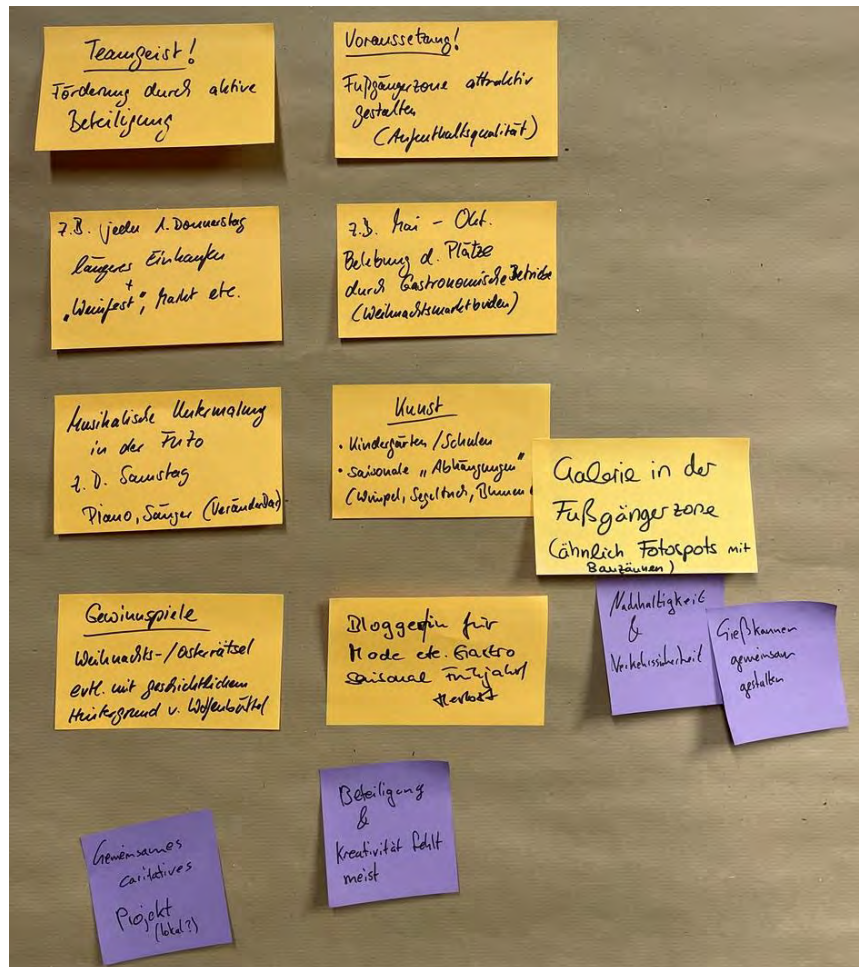 Teamgeist!
Förderung durch aktive
Beteiligung
Voraussetzung!
Fußgängerzone attraktiv
gestalten
(Aufenthaltsqualität)
z.B. jeder 1. Donnerstag
längeres Einkaufen
+
„Weinfest“, Markt etc.
z.B. Mai - Okt.
Belebung d. Plätze
durch Gastronomische Betriebe
(Weihnachtsmarktbuden)
Musikalische Untermalung
in der Fuzo
z.B. Samstag
Piano, Sänger (Veränderbar)
Kunst
• Kindergärten / Schulen
• saisonale „Abhängungen“
(Wimpel, Segeltuch, Blumen
Galerie in der
Fußgängerzone
(ähnlich Fotospots mit
Bauzäunen)
Gewinnspiele
Weihnachts-/Osterrätsel
evtl. mit geschichtlichem
Hintergrund v. Wolfenbüttel
Blogger/in für
Mode etc. Gastro
saisonal Frühjahr/
Herbst
Nachhaltigkeit
&
Verkehrssicherheit
Gießkannen
gemeinsam
gestalten
Gemeinsames
caritatives
Projekt
(lokal?)
Beteiligung
&
Kreativität fehlt
meist